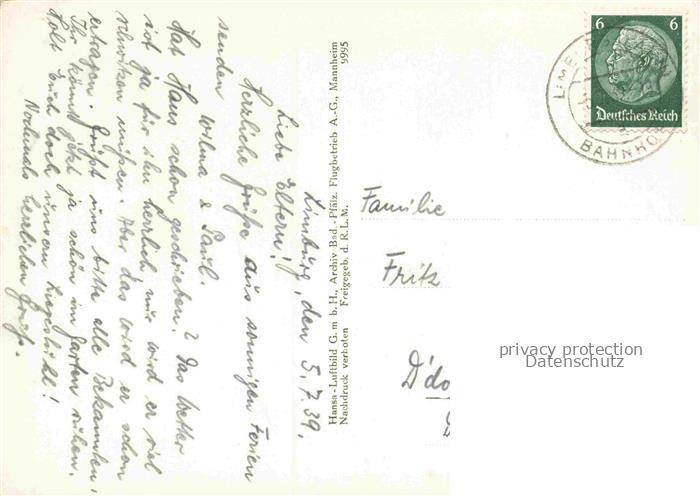 Limburg, den 5.7.39.
Liebe Eltern!
Herzliche Grüße aus sonnigen Ferien
senden
Wilma & Paul.
Hat Hans schon geschrieben? Das Wetter
ist ja für ihn herrlich, nur wird er viel
schwitzen müssen. Aber das wird er schon
ertragen. Grüßt uns bitte alle Bekannten,
Ihr könnt jetzt ja schön im Garten ruhen.
Holt Euch doch unsern Liegestuhl!
Nochmals herzlichen Gruß.
Hansa-Luftbild G. m. b. H., Archiv Bad.-Pfälz. Flugbetrieb A.-G., Mannheim
Nachdruck verboten Freigegeb. d. R.L.M. 9995
6 6
Deutsches Reich
LIMB
BAHNHO
Familie
Fritz
D'do
privacy protection
Datenschutz